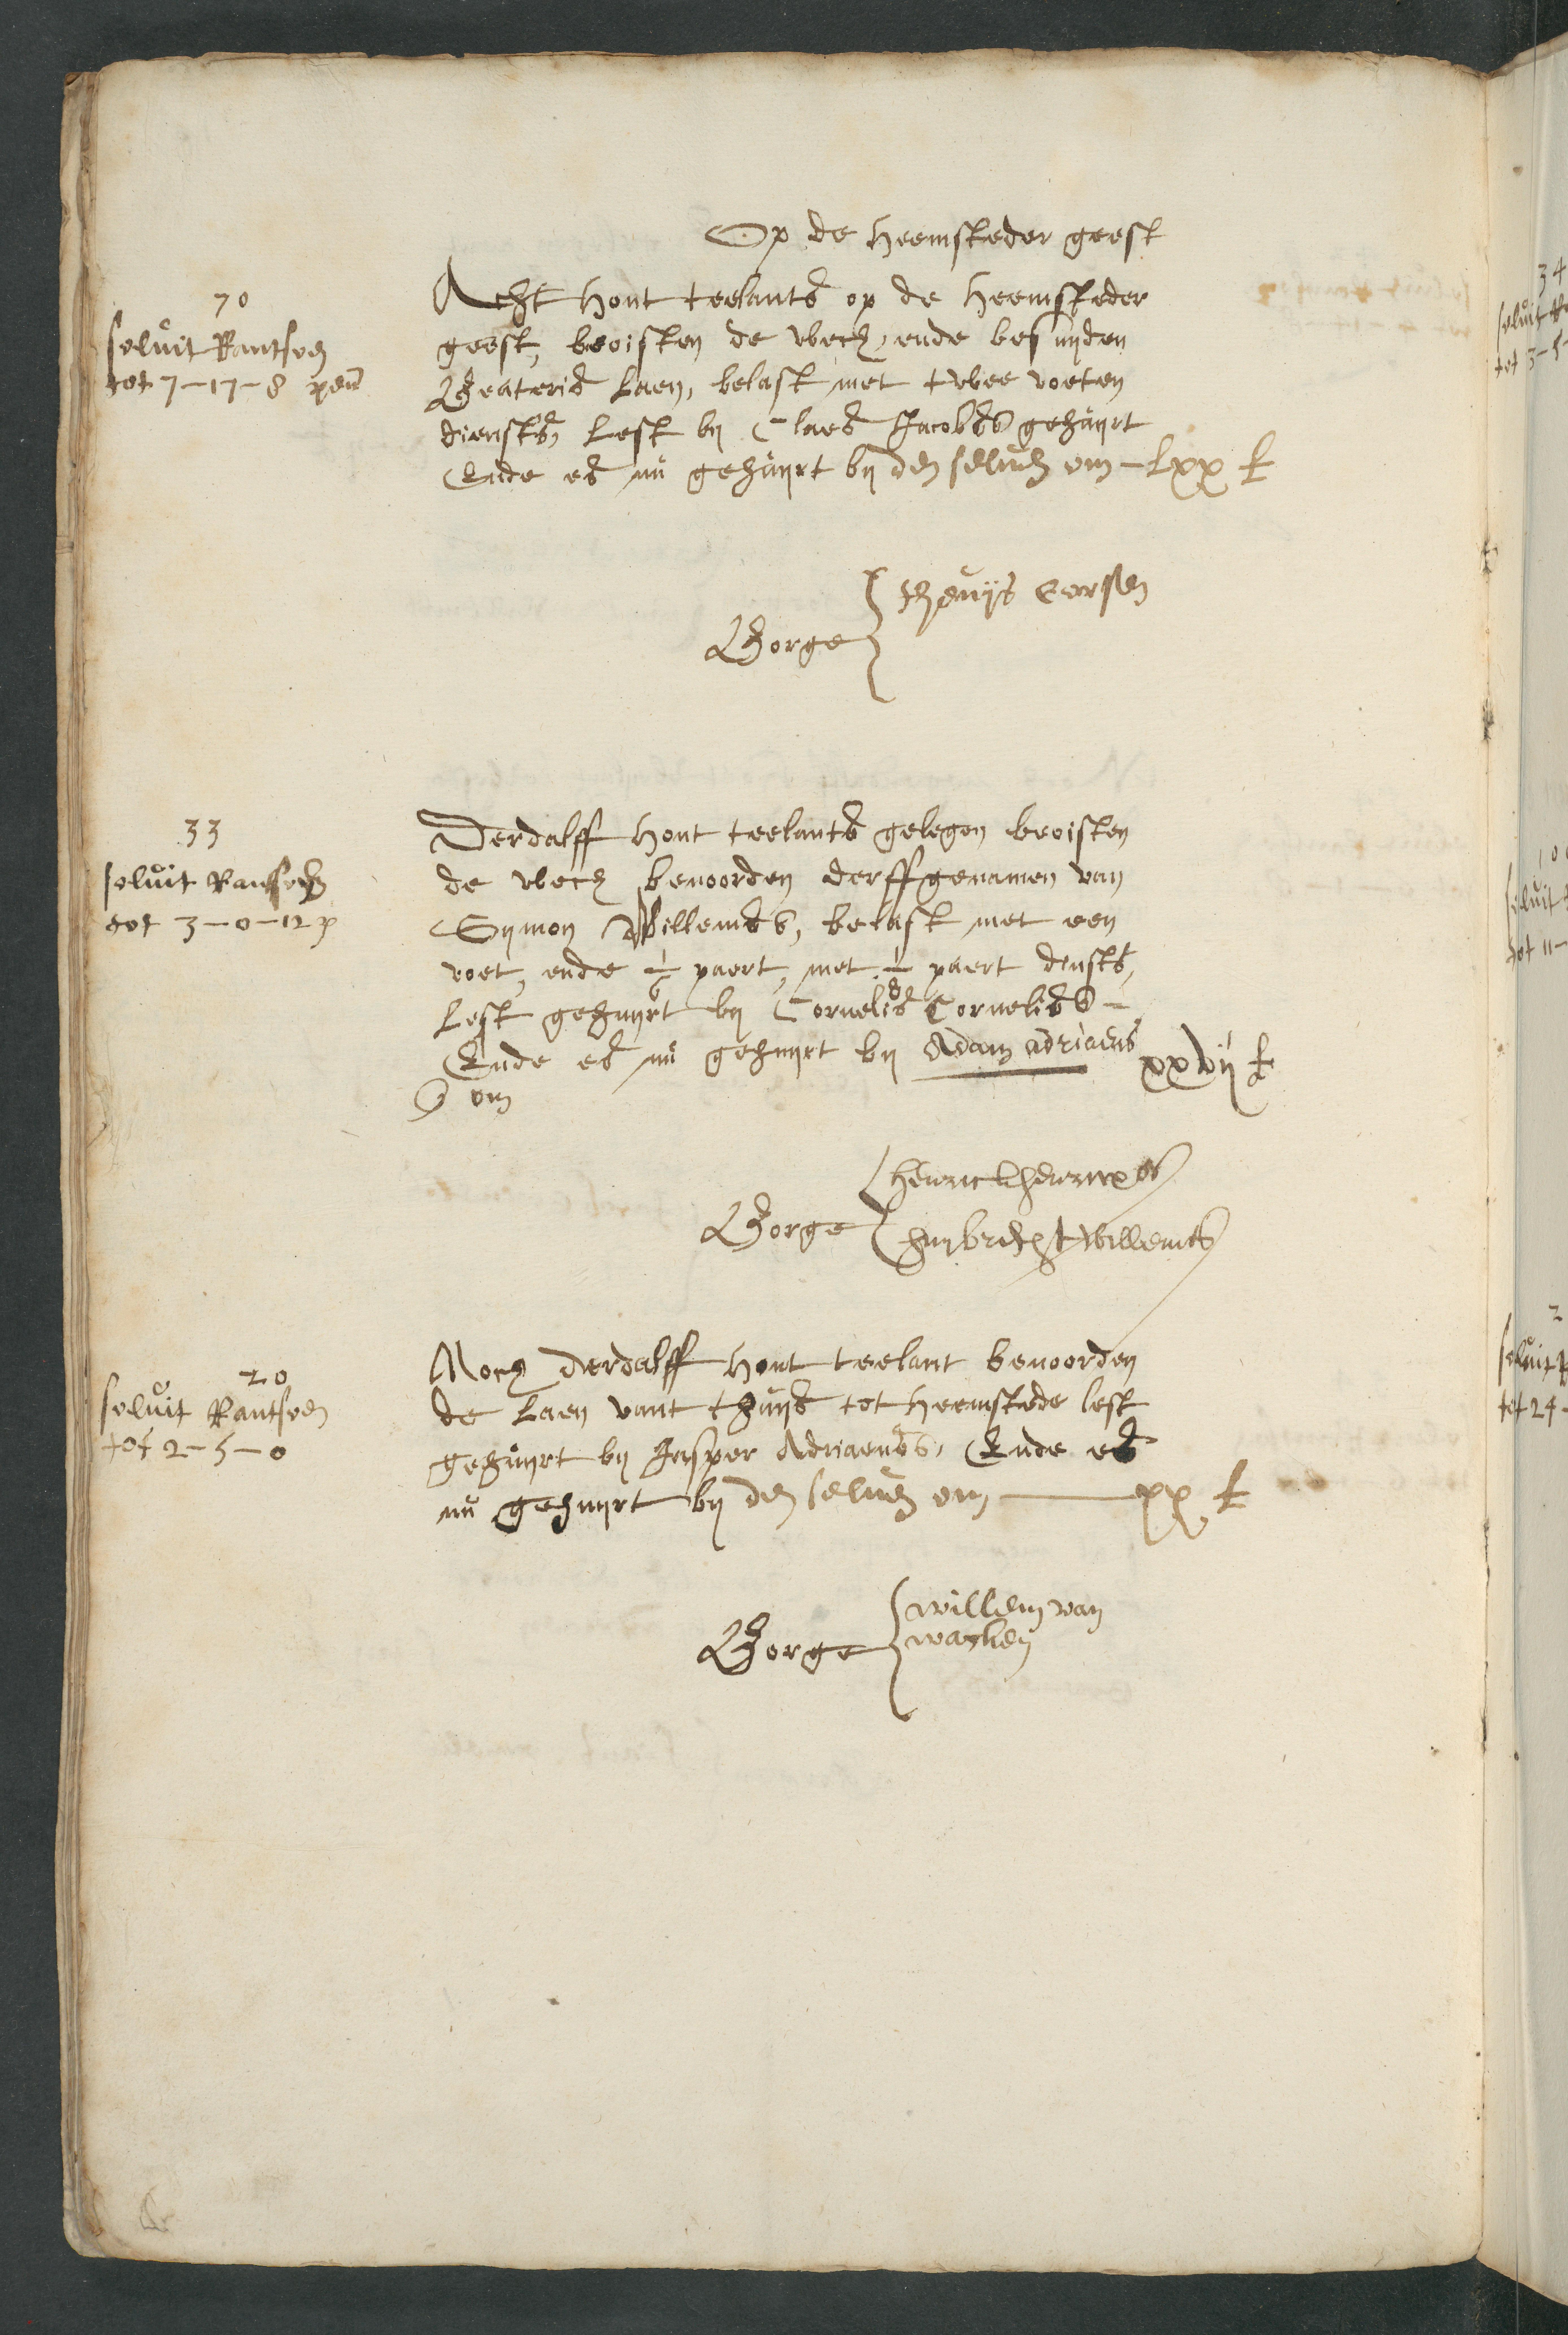 Op de heemsteder geest
70
soluit Rantsoen
tot 7-17-8 pen
Acht hont teelants op de heemsteder
geest, beoisten de wech, ende besuyden
Beateris laen, belast met twee voeten
diensts, lest bij Claes Jacobss gehuyrt
Ende es nu gehuyrt bij den seluen om - lxx £
Borge
theuijs Corssen
33
soluit Rantsoen
tot 3-0-12 p
Derdalff hont teelants gelegen beoisten
de wech benoorden derffgenamen van
Symon Willemss, belast met een
voet, ende 1/6 paert, met 1/8 paert diensts,
lest gehuyrt bij Cornelis Corneliss -
Ende es nu gehuyrt bij Adam adriaens
om xxvij £
Borge
henrick henricxs
huijbrecht Willemss
20
soluit Rantsoen
tot 2-5-0
Noch derdalff hont teelant benoorden
de laen vant thuys tot heemstede lest
gehuyrt bij Jasper Adriaenss, Ende es
nu gehuyrt bij den seluen om - xx £
Borge
willem van
34
soluit
tot 3-5-
soluit
tot 11-
soluit
tot 24-